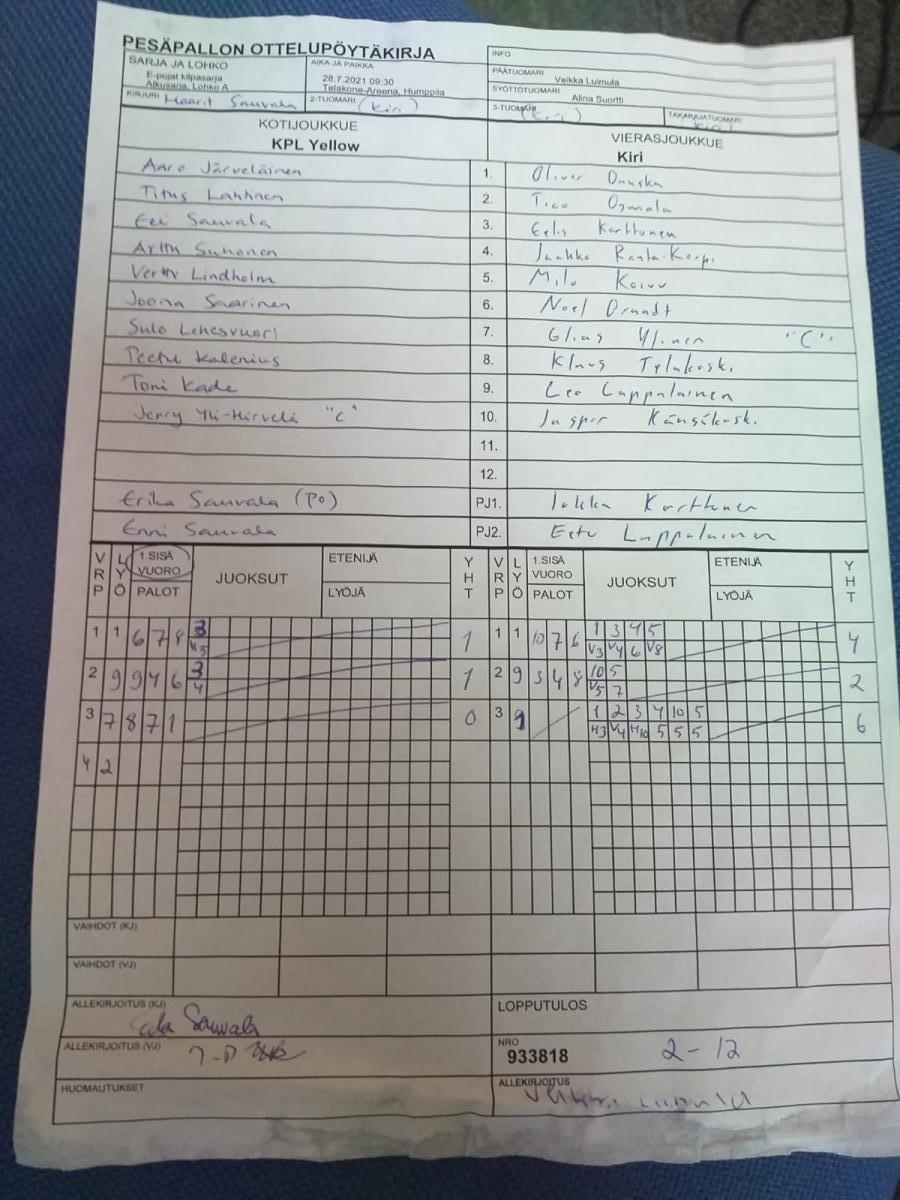 PESÄPALLON OTTELUPÖYTÄKIRJA
INFO
SARJA JA LOHKO
E-pojat kilpasarja
Alkusarja, Lohko A
AIKA JA PAIKKA
28.7.2021 09:30
Telakone-Areena, Humppila
PÄÄTUOMARI Veikka Luimula
SYÖTTÖTUOMARI Alina Suortti
KIRJURI Maarit Sauvala
2-TUOMARI (Kiri)
3-TUOMARI (Kiri)
TAKARAJATUOMARI
KOTIJOUKKUE
KPL Yellow
VIERASJOUKKUE
Kiri
Aaro Järveläinen 1. Oliver
Titus Lahtinen 2. Tico Ojmala
Eei Sauvala 3. Eelis Karttunen
Arttu Suhonen 4. Jaakko Ranta-Korpi
Vertti Lindholm 5. Milo Koivu
Joona Saarinen 6. Noel Brandt
Sulo Lehesvuori 7. Elias Ylinen "C"
Peetu Kalenius 8. Klaus Tylukoski
Toni Kade 9. Leo Lappalainen
Jerry Yli-Hirvelä "C" 10. Jasper Känsäkoski
11.
12.
Erika Sauvala (PO) PJ1. Jukka Karttunen
Enni Sauvala PJ2. Eetu Lappalainen
VRP LYÖ 1.SISÄ VUORO PALOT JUOKSUT ETENIJÄ LYÖJÄ YHT VRP LYÖ 1.SISÄ VUORO PALOT JUOKSUT ETENIJÄ LYÖJÄ YHT
1 1 6 7 8 3 1 1 1 10 7 6 1 3 4 5 4
V3 V4 6 V8
2 9 9 4 6 3 1 2 9 3 4 8 10 5 2
4 V5 7
3 7 8 7 1 0 3 9 1 2 3 4 10 5 6
H3 V4 H10 5 5 5
4 2
VAIHDOT (KJ)
VAIHDOT (VJ)
ALLEKIRJOITUS (KJ) Sauvala
LOPPUTULOS
ALLEKIRJOITUS (VJ)
NRO
933818 2-12
HUOMAUTUKSET
ALLEKIRJOITUS